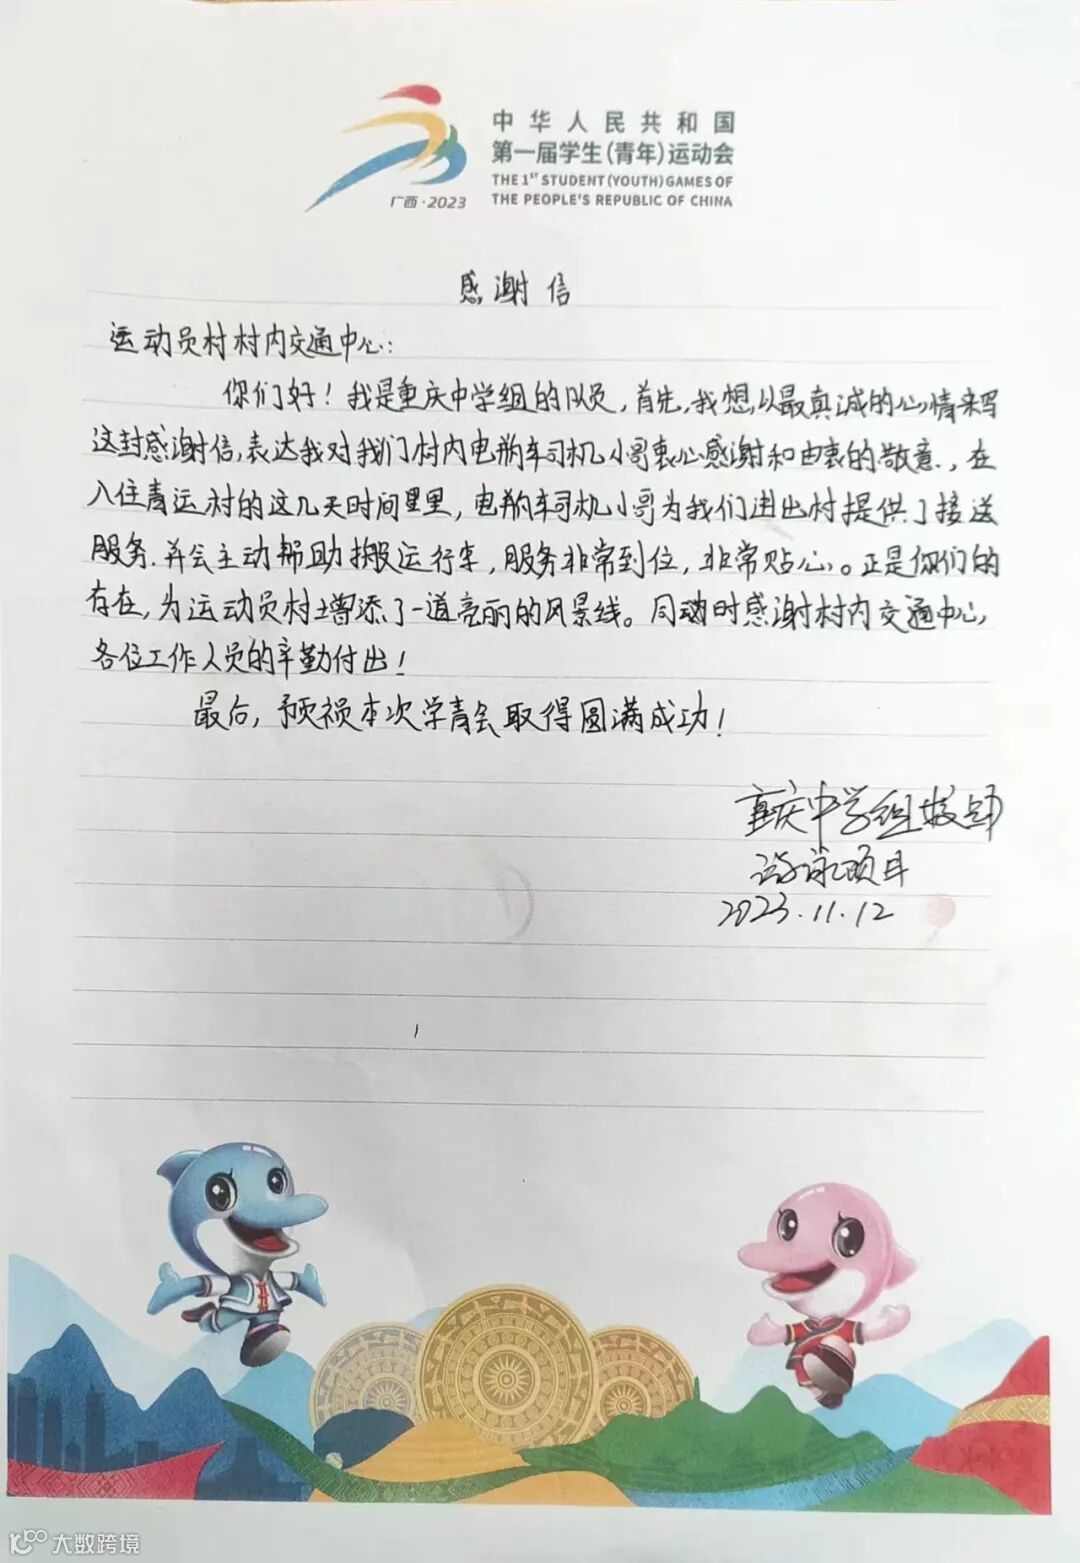 中华人民共和国
第一届学生(青年)运动会
THE 1ST STUDENT (YOUTH) GAMES OF
THE PEOPLE'S REPUBLIC OF CHINA
广西·2023
感谢信
运动员村村内交通中心:
你们好！我是重庆中学组的队员，首先，我想以最真诚的心情来写
这封感谢信，表达我对我们村内电瓶车司机小哥衷心感谢和由衷的敬意，在
入住青运村的这几天时间里里，电瓶车司机小哥为我们进出村提供了接送
服务.并会主动帮助搬运行李，服务非常到位，非常贴心。正是你们的
存在，为运动员村增添了一道亮丽的风景线。同时感谢村内交通中心，
各位工作人员的辛勤付出！
最后，预祝本次学青会取得圆满成功！
重庆中学组
游泳项目
2023.11.12
大数跨境